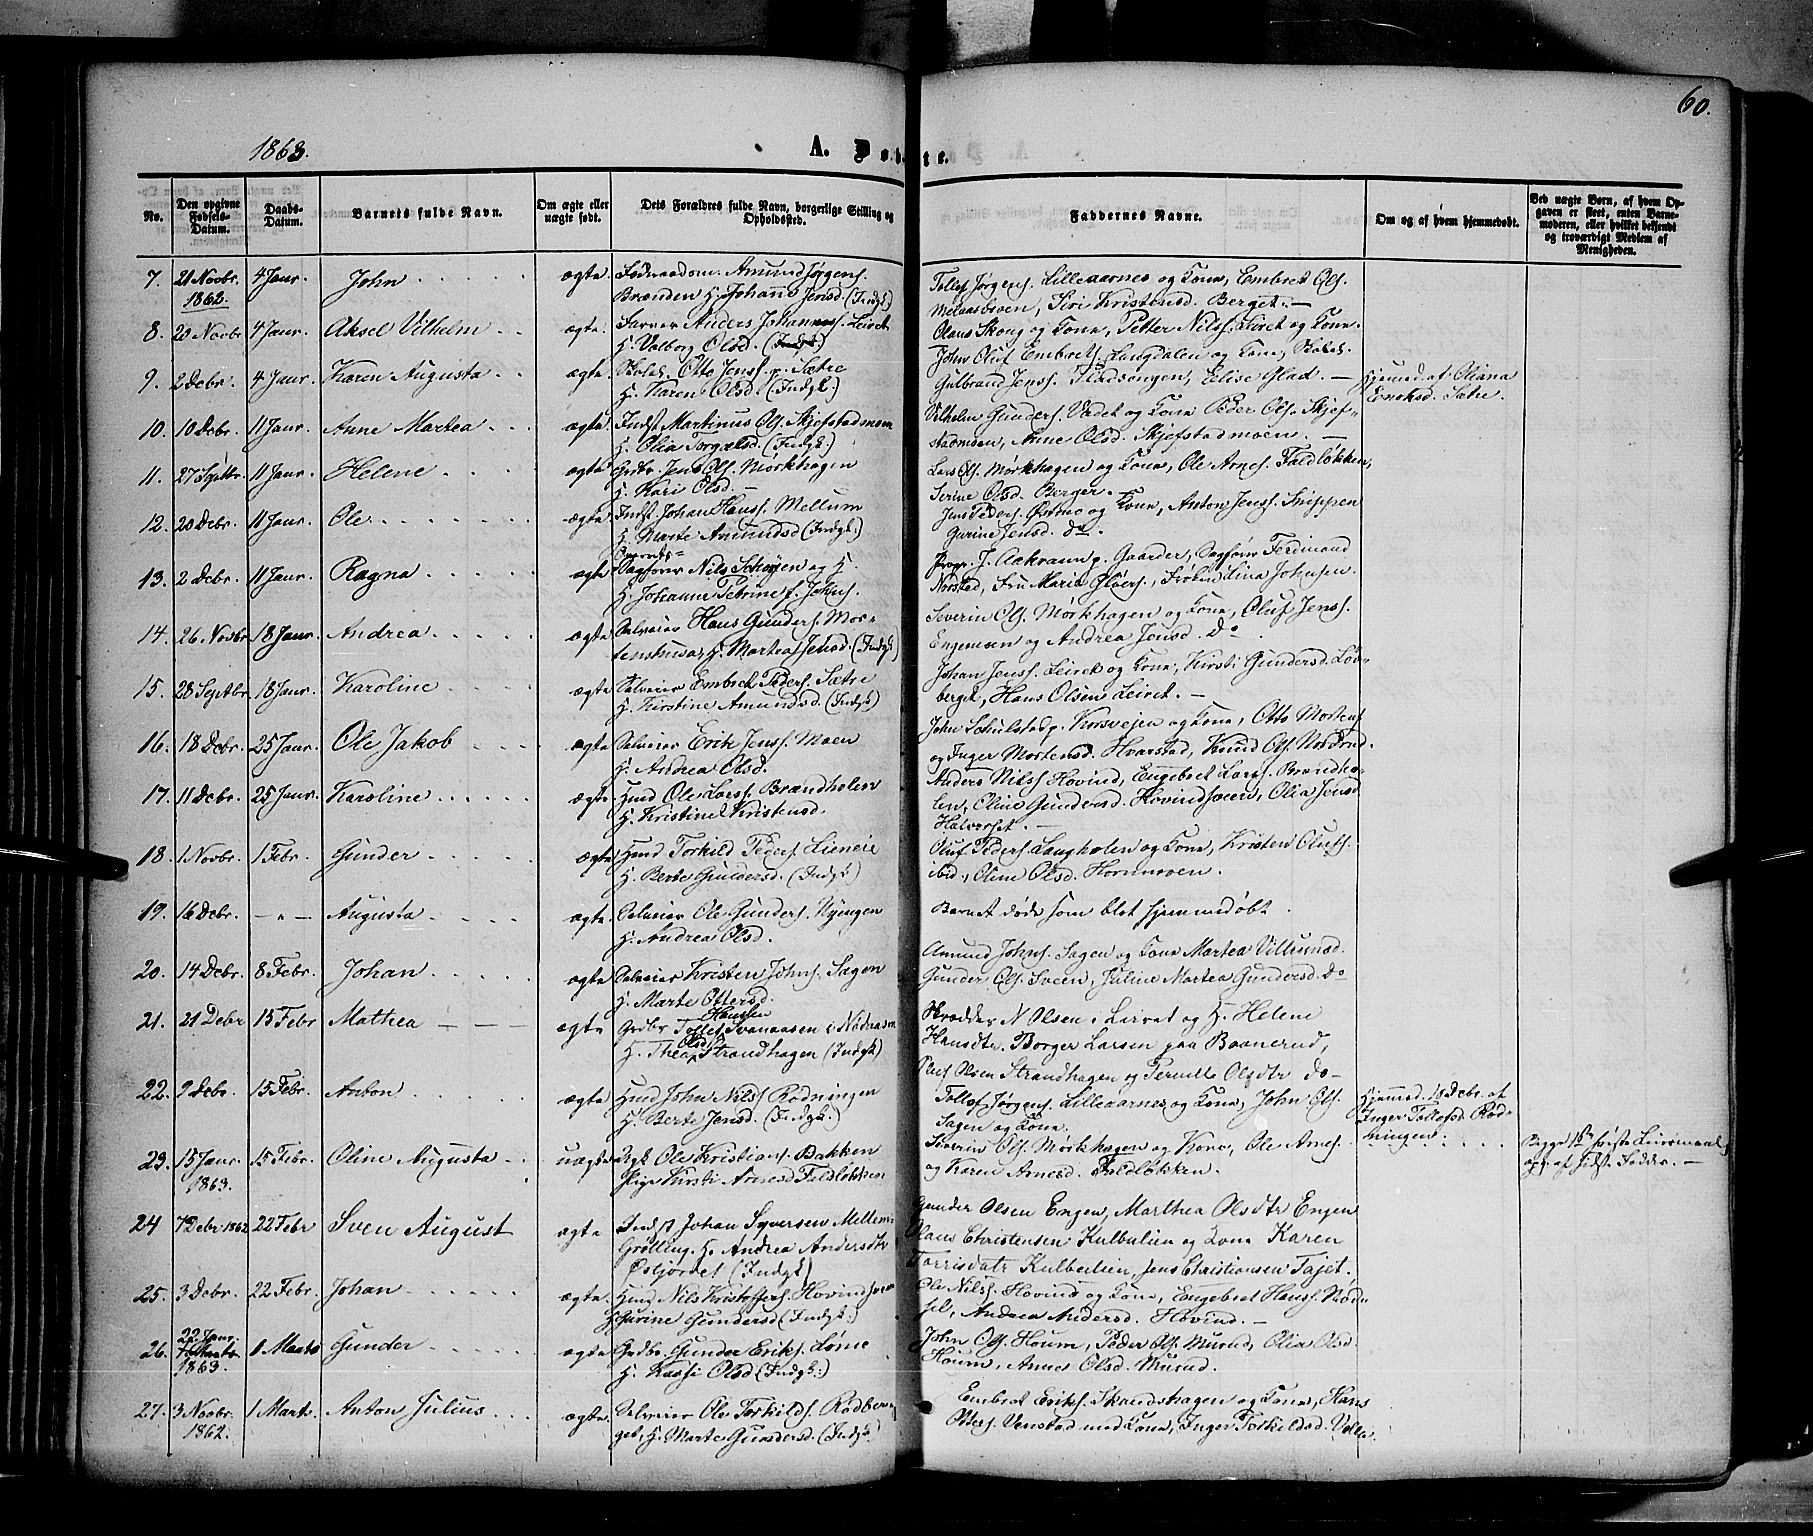 60.
1863.
A. Døbte.
No.
Den opgivne Fødsels-Datum.
Daabs-Datum.
Barnets fulde Navn.
Om ægte eller uægte født.
Dets Forældres fulde Navn, borgerlige Stilling og Opholdssted.
Faddernes Navne.
Om og af hvem hjemmedøbt.
Ved uægte Børn, af hvem Opgaven er skeet, enten Barnemoderen, eller hvilket bekjendt og troværdigt Medlem af Menigheden.
7. 21 Novbr. 1862. 4 Janr. John ægte Føderaadsm. Amund Jørgens.
Brænden H. Johanne Jensd. (Indgk.)
Tollef Jørgens. Lilleaarnes og Kone, Embret Ols.
Melaasbsven, Siri Kristensd. Berget. —
8. 20 Novbr 4 Janr. Aksel Vilhelm ægte. Farver Anders Johannes. Leiret
H. Valborg Olsd. (Indgk.)
Olaus Skoug og Kone, Petter Nilss. Leiret og Kone.
9. 2 Debr. 4 Janr. Karen Augusta ægte. Skolel. Otto Jenss. p. Sætre
H. Karen Olsd. (Indgk.)
John Oluf Embrets. Langdalen og Kone, Skolel.
Gulbrand Jenss. Fladsengen, Elise Glad. —
Hjemmed. af Oliana
Eriksd. Sætre.
10. 10 Debr. 11 Janr. Anne Martea ægte Indst Martinus Ols. Skjefstadmoen
H. Olia Torgalsd. (Indgk.)
Vilhelm Gunders. Vadet og Kone Peder Ols. Skjef-
stadmoen, Anne Olsd. Skjefstadmoen. —
11. 27 Septbr. 11 Janr. Helene ægte Grdbr. Jens Ols. Mørkhagen
H. Kari Olsd. —
Lars Ols. Mørkhagen og Kone, Ole Arnes. Faldløkken,
Serine Olsd. Berger. —
12. 20 Debr. 11 Janr. Ole ægte Indst Johan Hanss. Mellum
H. Marte Amundsd (Indgk.)
Jens Peders. Østmo og Kone, Anton Jenss. Snippen
Gurine Jensd. do.
13. 2 Debr. 11 Janr. Ragna ægte Sagfører Nils Schøyen og H.
H. Johanne Petrine f. Johns.
Propr. J. Aakrann p. Gaarder, Sagfører Ferdinand
Norstad, Fru Maria Øvers., Frøken Lina Johnsen.
14. 26 Novbr. 18 Janr. Andrea ægte Selveier Hans Gunders. Mor-
tenshusa, H. Martea Jensd. (Indgk.)
Severin Ols. Mørkhagen og Kone, Oluf Jenss.
Engemoen og Andrea Jensd. Do.
15. 28 Septbr. 18 Janr. Karoline ægte Selveier Embret Peders. Sætre
H. Kirstine Amundsd. (Indgk.)
Johan Jenss. Leiret og Kone, Kirsti Gundersd. Løv-
berget, Hans Olsens Leiret. —
16. 18 Debr. 25 Janr. Ole Jakob ægte. Selveier Erik Jenss. Moen
H. Andrea Olsd.
John Schulstad p. Korsvejen og Kone, Otto Mortens
og Inger Mortensd. Hvarstad, Knud Ols. Nordrud.
17. 11 Debr. 25 Janr. Karoline ægte Hmd Ole Larss. Brændholen
H. Kristine Kristensd.
Anders Nilss. Hovind, Engebret Larss. Brændho-
len, Oline Gundersd. Hovindsveen, Olia Jensd
Halvorset. —
18. 1 Novbr. 1 Febr. Gunder ægte Hmd Torkild Peders. Lieneie
H. Berte Gundersd. (Indgk.)
Oluf Peders. Langholen og Kone, Kristen Olufs.
ibid., Oline Olsd. Hornmoen.
19. 16 Debr. — " — Augusta ægte Selveier Ole Gunders. Nyengen
H. Andrea Olsd.
Barnet døde som blot hjemmedøbt.
20. 14 Debr. 8 Febr. Johan ægte Selveier Kristen Johns. Sagen
H. Marte Ottersd.
Amund Johns. Sagen og Kone Martea Villumsd.
Gunder Ols. Sveen, Juline Martea Gundersd. Do
21. 21 Debr 15 Febr Mathea — — — ægte Grdbr Tollef Hanssen Svanaasen i Nordaasen
H. Thea Olsd. Strandhagen (Indgk)
Skrædder N. Olsen i Leiret og H. Helene
Hansdtr. Borger Larsen paa Baanerud,
Oluf Olsen Strandhagen og Pernille Olsdtr do—
22. 9 Debr. 15 Febr. Anton ægte Hmd John Nilss Rødningen
H. Berte Jensd. (Indgk.)
Tollef Jørgens. Lilleaarnes og Kone, John Ols.
Sagen og Kone.
Hjemmed. 18 Debr. af
Inger Tollefsd. Rød-
ningen.
23. 15 Janr. 1863. 15 Febr. Oline Augusta uægte Ungk Ole Kristians. Bakken
Pige Kirsti Arnesd Faldløkken
Severin Ols. Mørkhagen og Kone, Ole Arnes.
og Karen Arnesd. Faldløkken.
Begges 1ste
opg. af sidste Fadder. —
24 7 Debr 1862 22 Febr Sven August ægte Indst Johan Syversen Mellem-
Grølling. H. Andrea Andersdtr
Østjordet (Indgk)
Gunder Olsen Engen, Marthea Olsdtr Engen
Olaus Christensen Kulbulien og Kone Karen
Torrisdatr Kulbulien, Jens Christiansen Tajet.
25. 3 Debr. 22 Febr. Johan ægte. Hmd Nils Kristoffers. Hovindsveen
H. Gurine Gundersd (Indgk.)
Ole Nilss. Hovind og Kone, Engebret Hanss. Rød-
sel, Andrea Andersd. Hovind. —
26. 22 Janr. 1863. 1 Marts Gunder ægte Grdbr. Gunder Eriks. Løvne
H. Kassi Olsd (Indgk.)
John Ols. Houm, Peder Ols. Murud, Olia Olsd
Houm, Anne Olsd. Murud.
27. 3 Novbr. 1862. 1 Marts. Anton Julius ægte Selveier Ole Torkilds. Rødber-
get, H. Marte Gundersd. (Indgk.)
Embret Eriks. Skandshagen og Kone, Hans
Otters. Venstad med Kone, Inger Torkildsd. Volla.